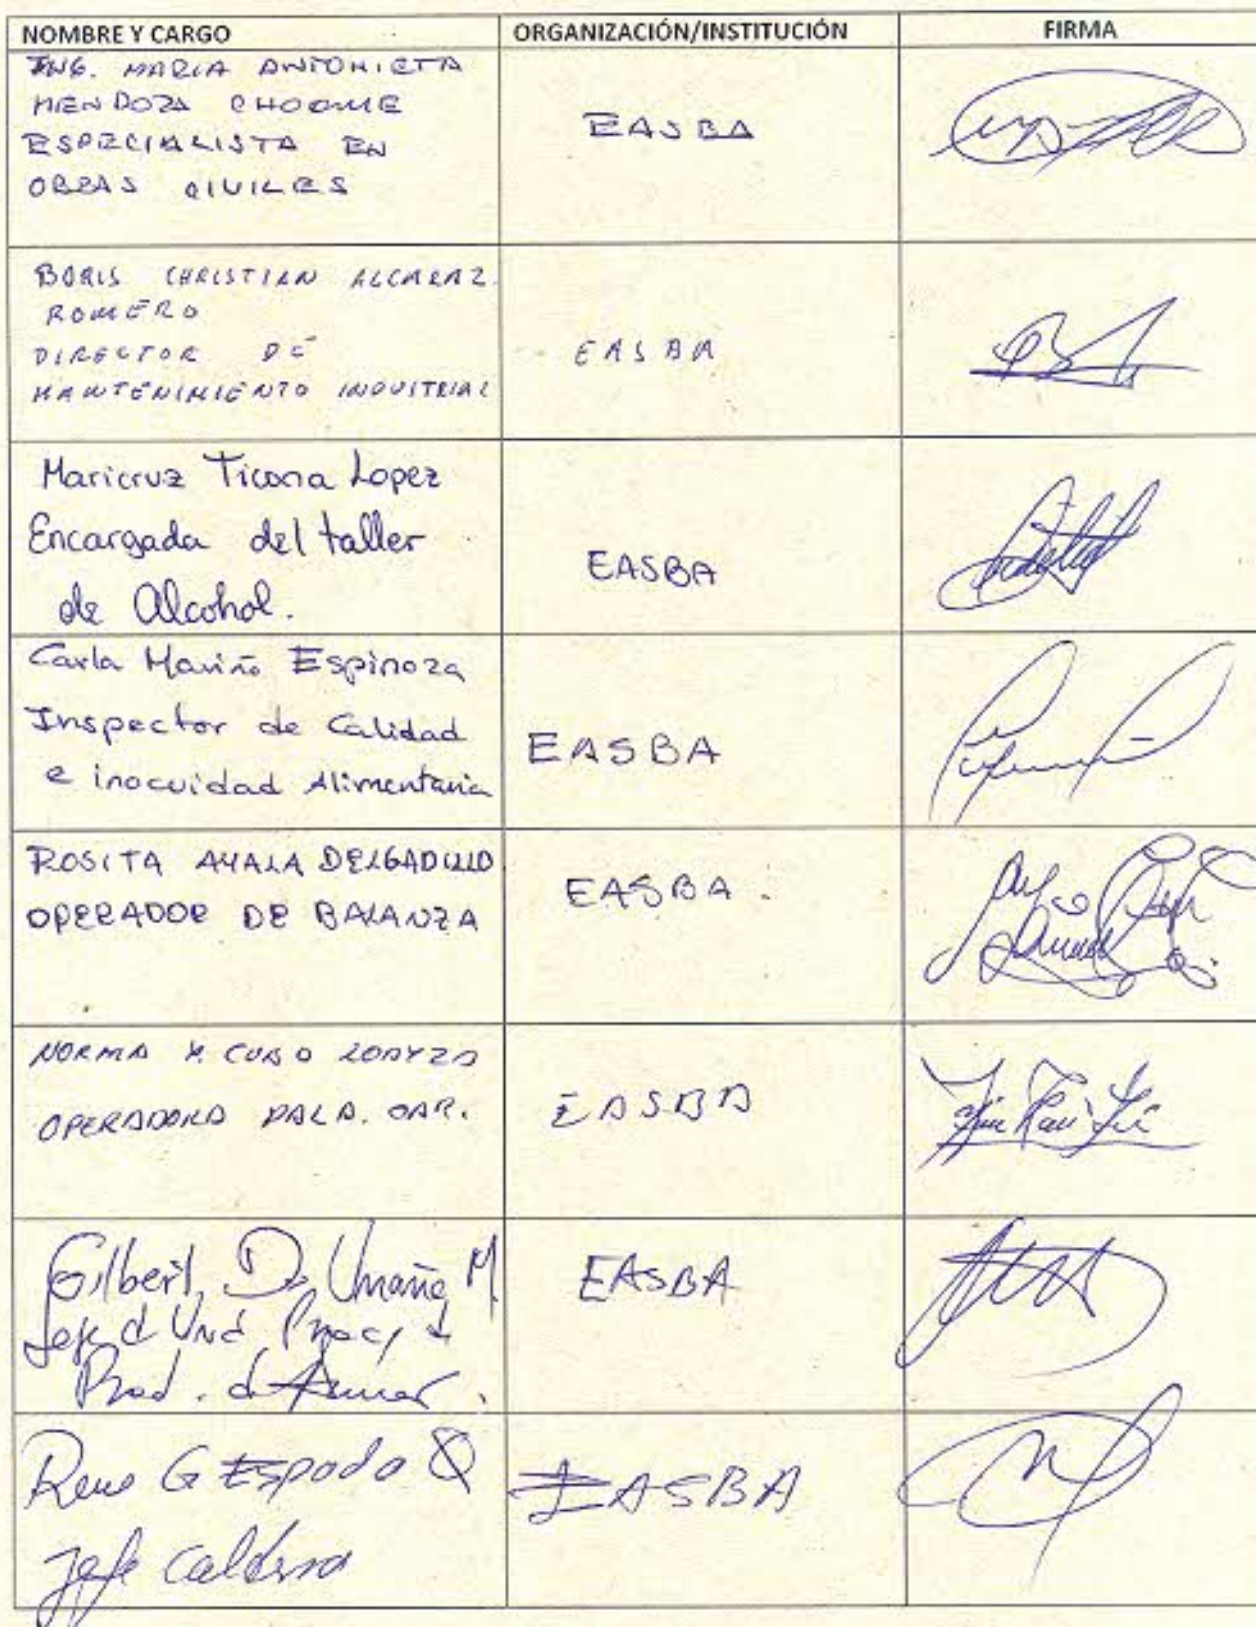 NOMBRE Y CARGO ORGANIZACIÓN/INSTITUCIÓN FIRMA
ING. MARIA ANTONIETA
MENDOZA CHOQUE
ESPECIALISTA EN
OBRAS CIVILES
EASBA
BORIS CHRISTIAN ALCARAZ
ROMERO
DIRECTOR DE
MANTENIMIENTO INDUSTRIAL
EASBA
Maricruz Ticona Lopez
Encargada del taller
de Alcohol.
EASBA
Carla Mariño Espinoza
Inspector de Calidad
e inocuidad Alimentaria
EASBA
ROSITA AYALA DELGADILLO
OPERADOR DE BALANZA
EASBA
NORMA Y. CUBO LOAYZA
OPERADORA PALA. CAR.
EASBA
Gilbert D. Umaña M
Jefe d Und
Prod. d
EASBA
Rene G Espada Q
Jefe Caldera
EASBA